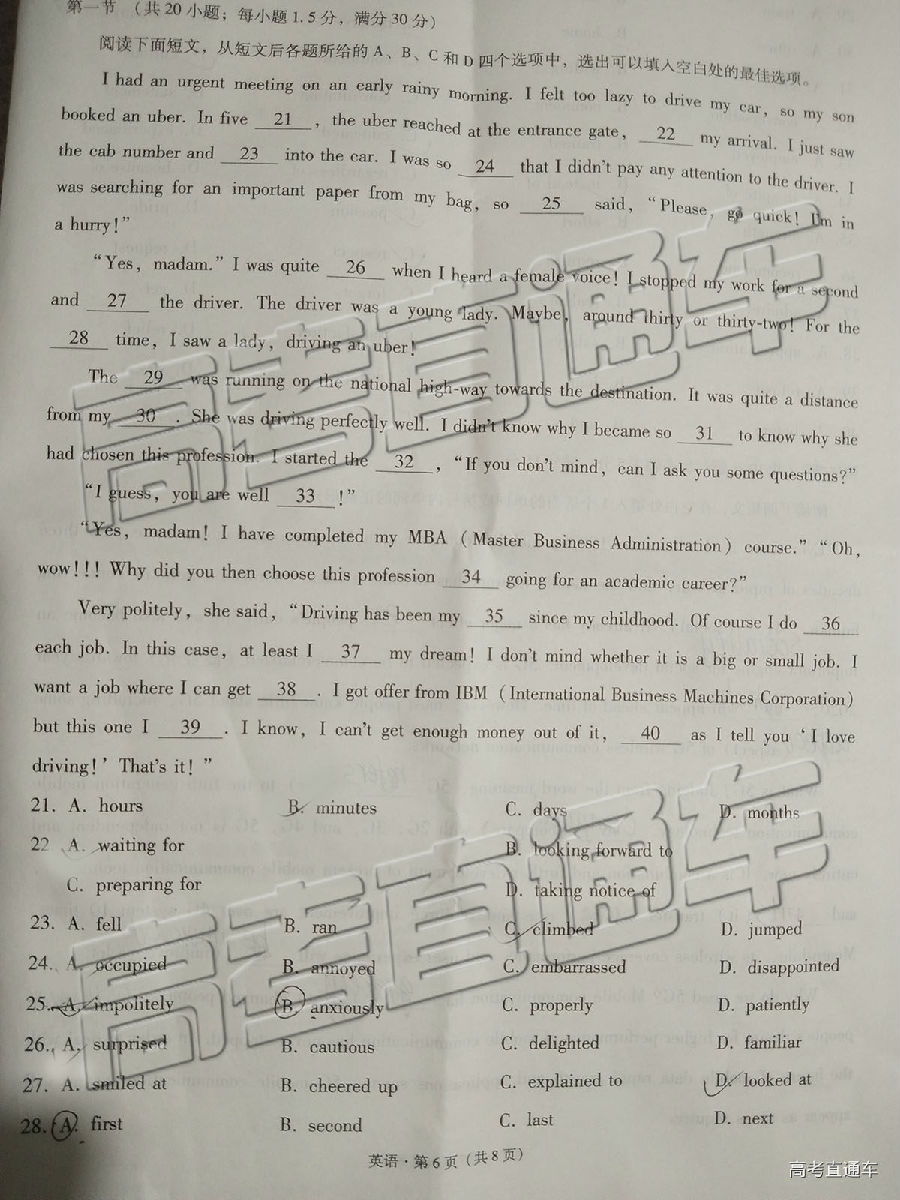 第一节 (共20小题;每小题1.5分,满分30分)
阅读下面短文,从短文后各题所给的A、B、C和D四个选项中,选出可以填入空白处的最佳选项。
I had an urgent meeting on an early rainy morning. I felt too lazy to drive my car, so my son
booked an uber. In five 21 , the uber reached at the entrance gate, 22 my arrival. I just saw
the cab number and 23 into the car. I was so 24 that I didn't pay any attention to the driver. I
was searching for an important paper from my bag, so 25 said, "Please, go quick! I'm in
a hurry!"
"Yes, madam." I was quite 26 when I heard a female voice! I stopped my work for a second
and 27 the driver. The driver was a young lady. Maybe, around thirty or thirty-two! For the
28 time, I saw a lady, driving an uber!
The 29 was running on the national high-way towards the destination. It was quite a distance
from my 30 . She was driving perfectly well. I didn't know why I became so 31 to know why she
had chosen this profession. I started the 32 , "If you don't mind, can I ask you some questions?"
"I guess, you are well 33 !"
"Yes, madam! I have completed my MBA (Master Business Administration) course." "Oh,
wow!!! Why did you then choose this profession 34 going for an academic career?"
Very politely, she said, "Driving has been my 35 since my childhood. Of course I do 36
each job. In this case, at least I 37 my dream! I don't mind whether it is a big or small job. I
want a job where I can get 38 . I got offer from IBM (International Business Machines Corporation)
but this one I 39 . I know, I can't get enough money out of it, 40 as I tell you 'I love
driving!' That's it! "
21. A. hours B. minutes C. days D. months
22 A. waiting for B. looking forward to
C. preparing for D. taking notice of
23. A. fell B. ran C. climbed D. jumped
24. A. occupied B. annoyed C. embarrassed D. disappointed
25. A. impolitely B. anxiously C. properly D. patiently
26. A. surprised B. cautious C. delighted D. familiar
27. A. smiled at B. cheered up C. explained to D. looked at
28. A. first B. second C. last D. next
英语·第6页(共8页)
高考直通车
高考直通车
高考直通车